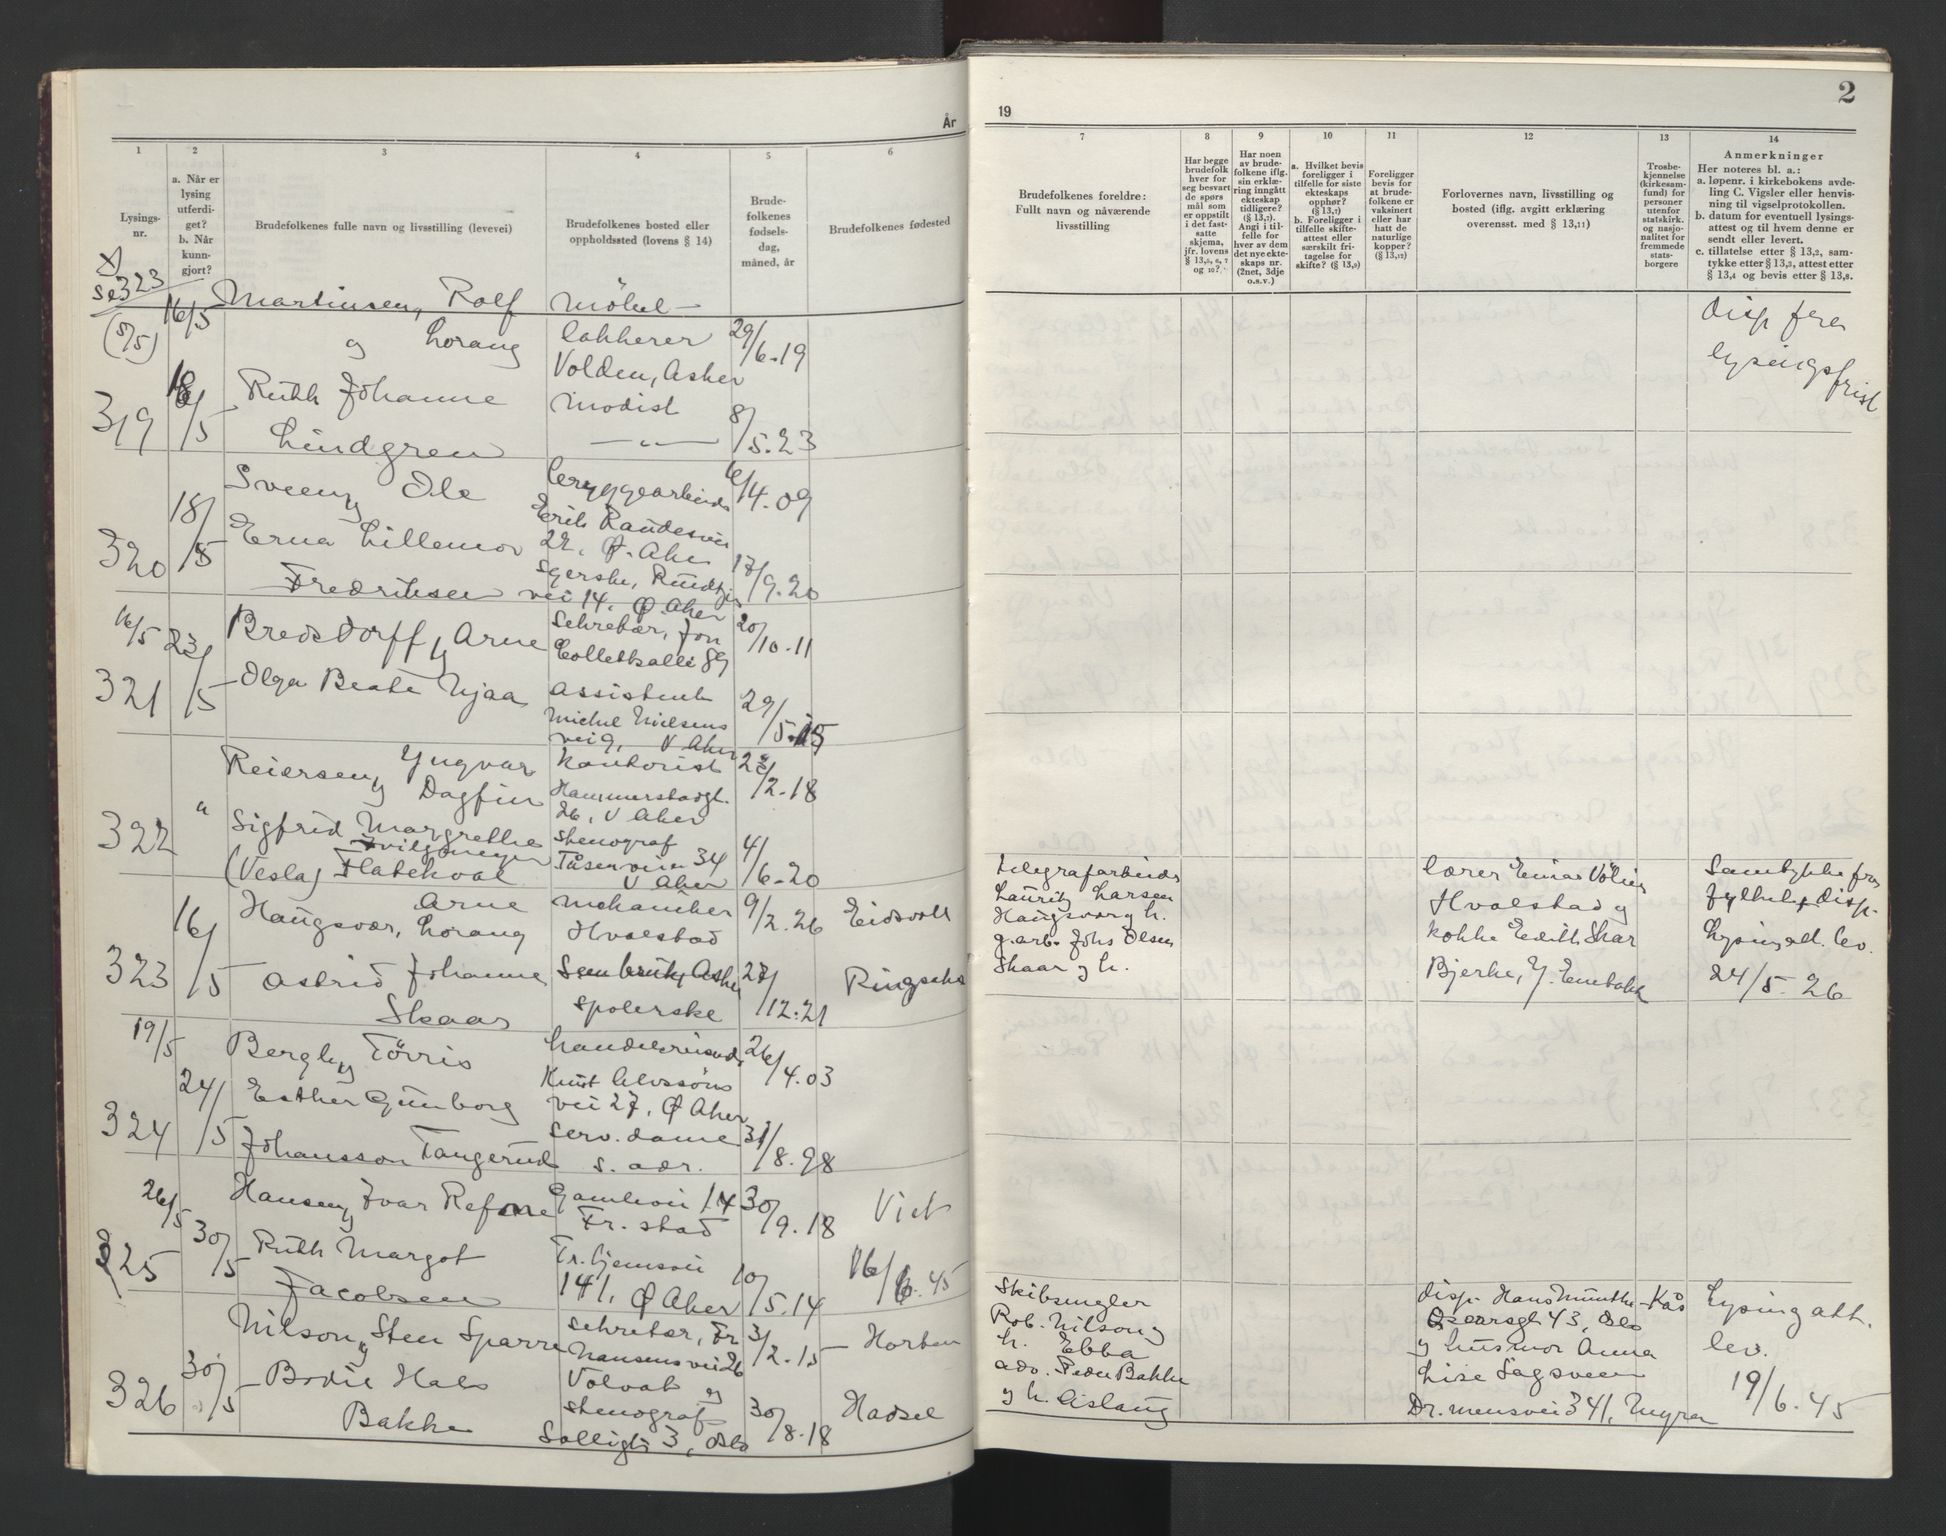 År
1
2
3
4
5
6
Lysings-
nr.
a. Når er
lysing
utferdi-
get?
b. Når
kunn-
gjort?
Brudefolkenes fulle navn og livsstilling (levevei)
Brudefolkenes bosted eller
oppholdssted (lovens § 14)
Brude-
folkenes
fødsels-
dag,
måned, år
Brudefolkenes fødested
x)
se 323
16/5
(5/5)
Martinsen, Rolf
og Lorang
Møbel-
lakkerer
Volden, Asker
29/6-19
319
18/5
Ruth Johanne
Lindgren
modist
— " —
8/5.23
18/5
Sveen, Ole
y
bryggearbeider
Erik
22, Ø. Aker
6/4.09
320
Erna Lillemor
Fredriksen
vei 14, Ø. Aker
17/9.20
16/5 23/5
Bredsdorff, Arne
y
Sekretær, Jon
Colletsallé 89
20/10.11
321
Olga Beate Njaa
assistent
Michel Nielsens
vei 9, V Aker
29/5.15
Reiersen, Yngvar
y Dagfin
Kontorist
Hammerstadgt.
26, V Aker
2.18
322
"
Sigfrid Margrethe
(Vesla) Flatekval
stenograf
Tåsenveien 34
V Aker
4/6-20
16/5
Haugsvær, Arne
Lorang
mekaniker
Hvalstad
9/2.26
Eidsvoll
323
Astrid Johanne
Skaar
Sem bruk, Asker
spolerske
27/12.21
19/5
Bergh, Törris
y
Knut Alvssöns
vei 27, Ø Aker
26/4.03
24/5
324
Esther Gunborg
Johansson Tangerud
serv. dame
s. adr.
31/8.98
26/5
Hansen, Ivar
y
Gamlevei 14
Fr. stad
30/9.18
Viet
30/5
325
Ruth Margot
Jacobsen
141, Ø Aker
10/5.14
16/6.45
Nilson, Sten Sparre
y
sekretær, Fr.
Nansensvei 26
Volvat
3/2-15
Horten
30/5
326
Bodil Hals
Bakke
og
stenograf
Solligt 3, Oslo
30/8.18
Hadsel
19
2
7
8
9
10
11
12
13
14
Brudefolkenes foreldre:
Fullt navn og nåværende
livsstilling
Har begge
brudefolk
hver for
seg besvart
de spørs
mål som
er oppstilt
i det fast-
satte
skjema,
jfr. lovens
§ 13,5, 6, 7
og 10?
Har noen
av brude-
folkene iflg.
sin erklæ-
ring inngått
ekteskap
tidligere?
(§ 13,7).
Angi i til-
felle for
hver av dem
det nye ekte-
skaps nr.
(2net, 3dje
o.s.v.)
a. Hvilket bevis
foreligger i
tilfelle for siste
ekteskaps
opphør?
(§ 13,7)
b. Foreligger i
tilfelle skifte-
attest eller
særskilt fri-
tagelse for
skifte? (§ 13,9)
Foreligger
bevis for
at brude-
folkene er
vaksinert
eller har
hatt de
naturlige
kopper?
(§ 13,12)
Forlovernes navn, livsstilling og
bosted (iflg. avgitt erklæring
overensst. med § 13,11)
Trosbe-
kjennelse
(kirkesam-
fund) for
personer
utenfor
statskirk.
og nasjo-
nalitet for
fremmede
stats-
borgere
Anmerkninger
Her noteres bl. a.:
a. løpenr. i kirkebokens avde-
ling C. Vigsler eller henvis-
ning til vigselprotokollen.
b. datum for eventuell lysings-
attest og til hvem denne er
sendt eller levert.
c. tillatelse etter § 13,2, sam-
tykke etter § 13,3, attest etter
§ 13,4 og bevis etter § 13,8.
Disp fra
lysingsfrist
telegrafarbeider
Lauritz Larsen
Haugsvær y h.
g.arb. Johs Olsen
Skaar y h.
lærer Einar
Hvalstad y
kokke Edith Skar
Bjerke, Y. Enebakk
Samtykke fra
fylket, disp.
Lysing att. lev.
24/5. 26
Skibsmegler
Rob. Nilson y
h. Ebba
adv. Peder Bakke
y h. Aslaug
disp. Hans Munthe-Kås
Oscarsgt 43, Oslo
y husmor Anna
Lise Sagsveen
34
Lysing att.
lev.
19/6.45